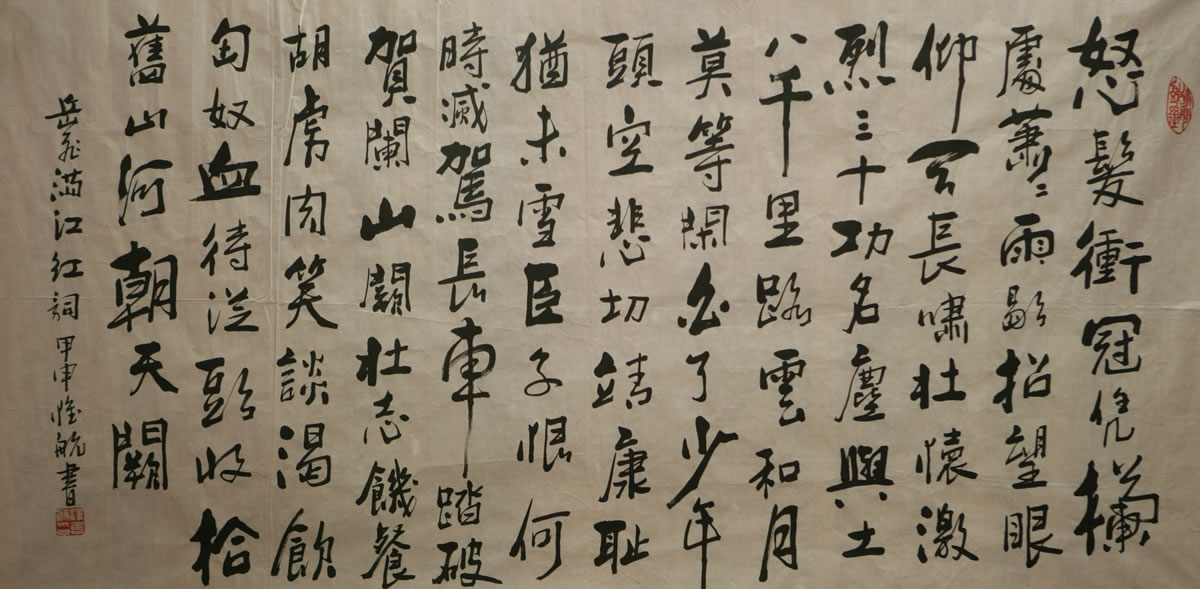 怒髮衝冠凭欄
處蕭〻雨歇抬望眼
仰天長嘯壯懷激
烈三十功名塵與土
八千里路雲和月
莫等閑白了少年
頭空悲切靖康耻
猶未雪臣子恨何
時滅駕長車踏破
賀闌山闕壯志饑餐
胡虜肉笑談渴飲
匈奴血待從頭收拾
舊山河朝天闕
岳飛滿江紅詞 甲申 航書